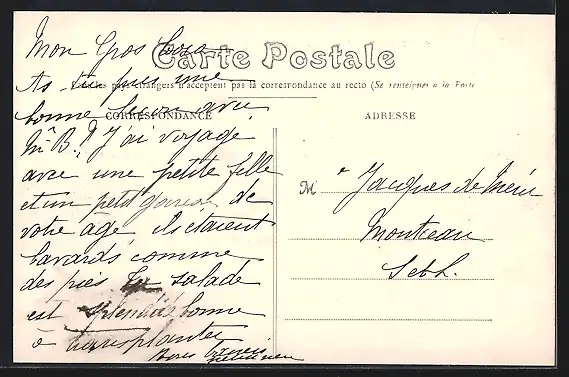 Mon Gros Loux
Carte Postale
As-tu pris une
Tous les pays étrangers n'acceptent pas la correspondance au recto (Se renseigner à la Poste
bonne leçon avec
CORRESPONDANCE
ADRESSE
Mr B? J'ai voyagé
avec une petite fille
et un petit garçon de
votre âge ils étaient
bavards comme
des pies ta salade
est splendide bonne
à transplanter
M r Jacques de
Montceau